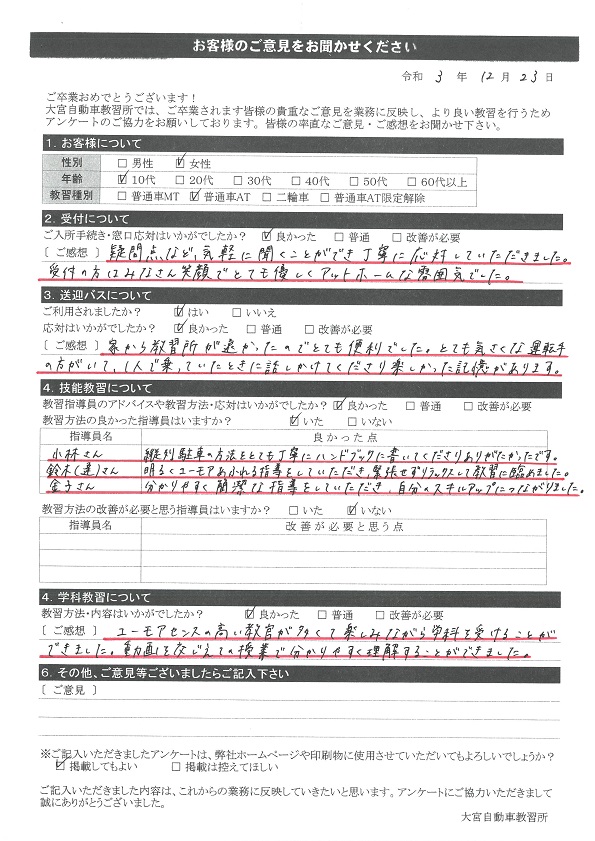 お客様のご意見をお聞かせください
令和 3 年 12 月 23 日
ご卒業おめでとうございます！
大宮自動車教習所では、ご卒業されます皆様の貴重なご意見を業務に反映し、より良い教習を行うため
アンケートのご協力をお願いしております。皆様の率直なご意見・ご感想をお聞かせ下さい。
1. お客様について
性別 □ 男性 ☑ 女性
年齢 ☑ 10代 □ 20代 □ 30代 □ 40代 □ 50代 □ 60代以上
教習種別 □ 普通車MT ☑ 普通車AT □ 二輪車 □ 普通車AT限定解除
2. 受付について
ご入所手続き・窓口応対はいかがでしたか？ ☑ 良かった □ 普通 □ 改善が必要
〔 ご感想 〕 疑問点など、気軽に聞くことができ丁寧に応対していただきました。
受付の方はみなさん笑顔でとても優しくアットホームな雰囲気でした。
3. 送迎バスについて
ご利用されましたか？ ☑ はい □ いいえ
応対はいかがでしたか？ ☑ 良かった □ 普通 □ 改善が必要
〔 ご感想 〕 家から教習所が遠かったのでとても便利でした。とても気さくな運転手
の方がいて、1人で乗っていたときに話しかけてくださり楽しかった記憶があります。
4. 技能教習について
教習指導員のアドバイスや教習方法・応対はいかがでしたか？ ☑ 良かった □ 普通 □ 改善が必要
教習方法の良かった指導員はいますか？ ☑ いた □ いない
指導員名 良かった点
小林さん 縦列駐車の方法をとても丁寧にハンドブックに書いてくださりありがたかったです。
鈴木(達)さん 明るくユーモアあふれる指導をしていただき、緊張せずリラックスして教習に臨めました。
金子さん 分かりやすく簡潔な指導をしていただき、自分のスキルアップにつながりました。
教習方法の改善が必要と思う指導員はいますか？ □ いた ☑ いない
指導員名 改善が必要と思う点
4. 学科教習について
教習方法・内容はいかがでしたか？ ☑ 良かった □ 普通 □ 改善が必要
〔 ご感想 〕 ユーモアセンスの高い教官が多くて楽しみながら学科を受けることが
できました。動画をまじえての授業で分かりやすく理解することができました。
6. その他、ご意見等ございましたらご記入下さい
〔 ご意見 〕
※ご記入いただきましたアンケートは、弊社ホームページや印刷物に使用させていただいてもよろしいでしょうか？
☑ 掲載してもよい □ 掲載は控えてほしい
ご記入いただきました内容は、これからの業務に反映していきたいと思います。アンケートにご協力いただきまして
誠にありがとうございました。
大宮自動車教習所